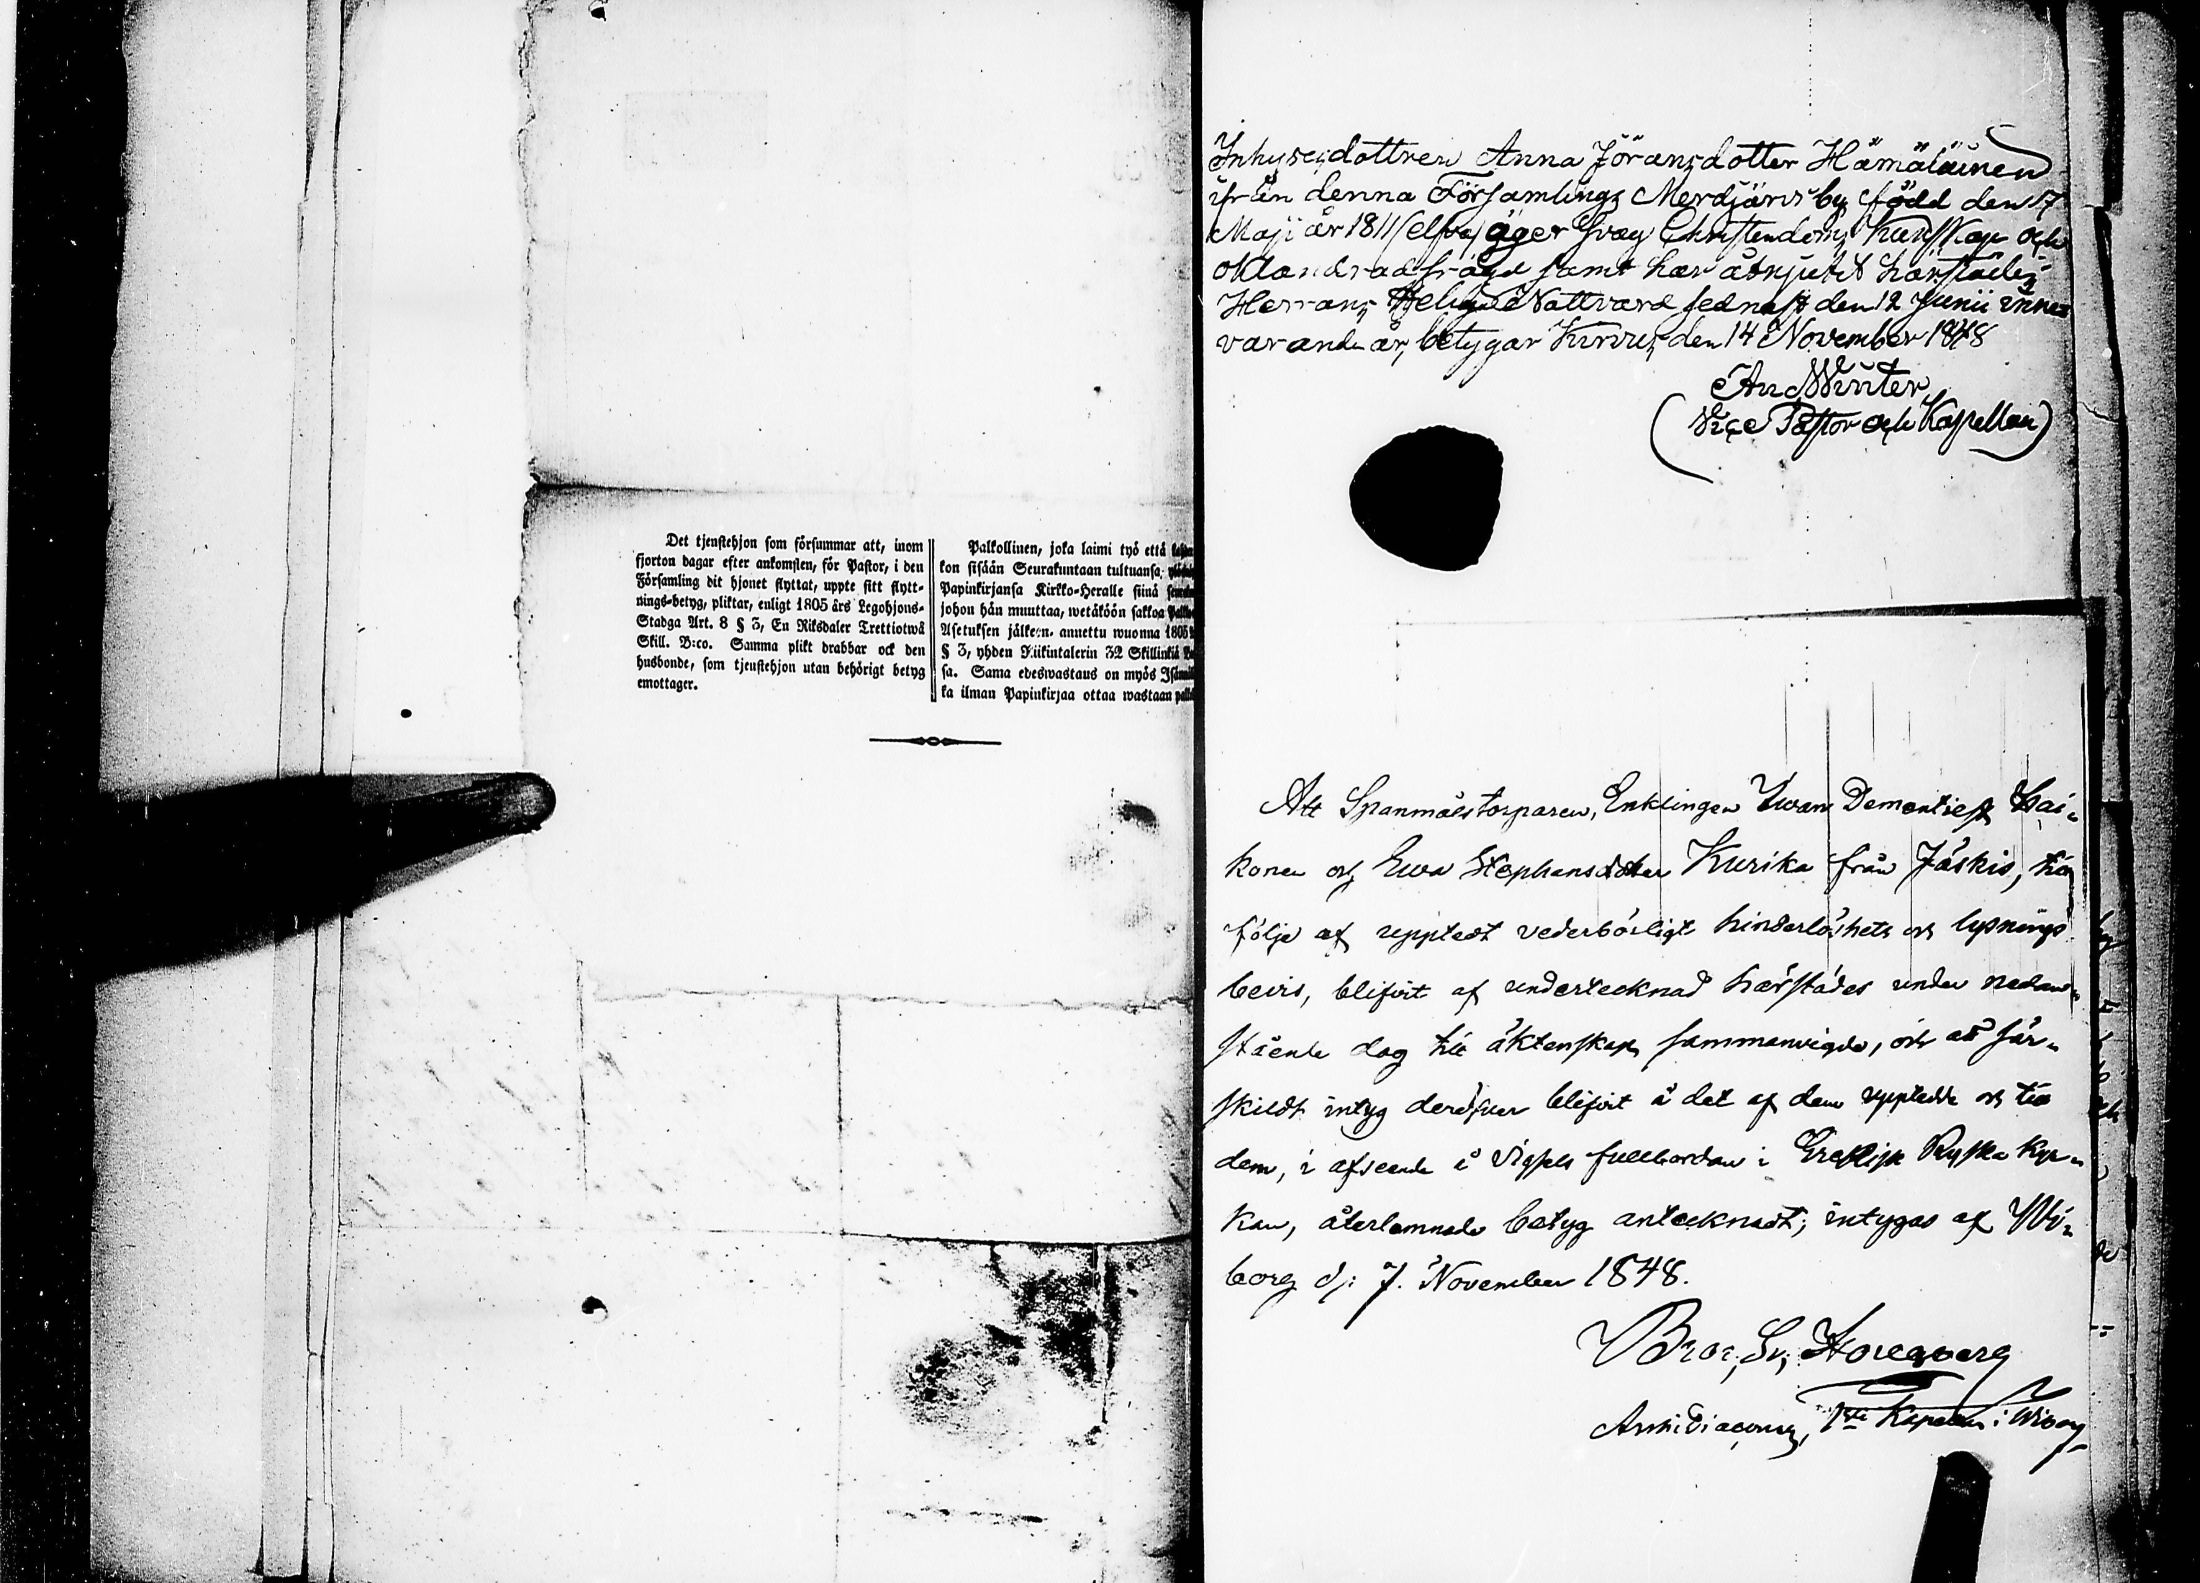 Det tjenstehjon som försummar att, inom
fjorton dagar efter ankomsten, för Pastor, i den
Församling dit hjonet flyttat, uppte sitt flytt-
nings-betyg, pliktar, enligt 1805 års Legohjons-
Stadga Art. 8 § 3, En Riksdaler Trettiotwå
Skill. B:co. Samma plikt drabbar ock den
husbonde, som tjenstehjon utan behörigt betyg
emottager.
Palkollinen, joka laimi lyö että
kon sisään Seurakuntaan tultuansa,
Papinkirjansa Kirkko-Heralle siinä
johon hän muuttaa, wetäköön sakkoa
Asetuksen jälkeen, annettu wuonna 1805
§ 3, yhden Riikintalerin 32 Skillinkiä
sa. Sama edeswastaus on myös
ka ilman Papinkirjaa ottaa wastaan
Inhysesdottren Anna Jöransdotter Hämäläinen
ifrån denna Församlings Merdjärvi by född den 17
Maji år 1811 (elfva) äger svag Christendoms kunskap och
oklandrad frägd samt har åtnjutit härstädes
Herrans Heliga Nattvard sednast den 12 Junii inne
varande år, betygar Kirvus den 14 November 1848
And Winter
(Vice Pastor och Kapellan)
Att Spanmålstorparen, Enklingen Iwan Dementieff Lai-
konen och Ewa Stephansdotter Kurika från Jäskis, till
följe af upptedt vederbörligt hinderlöshets och lysnings
bevis, blifvit af undertecknad härstädes under nedan-
stående dag till äktenskap sammanvigde, och att sär-
skildt intyg deröfver blifvit å det af dem upptedde och till
dem, i afseende å vigsels fullbordan i Grekisk Ryska Kyr-
kan, återlemnade betyg antecknadt, intygas af Wi-
borg d: 7. November 1848.
Archidiaconus, 1ste Kapellan i Wiborg